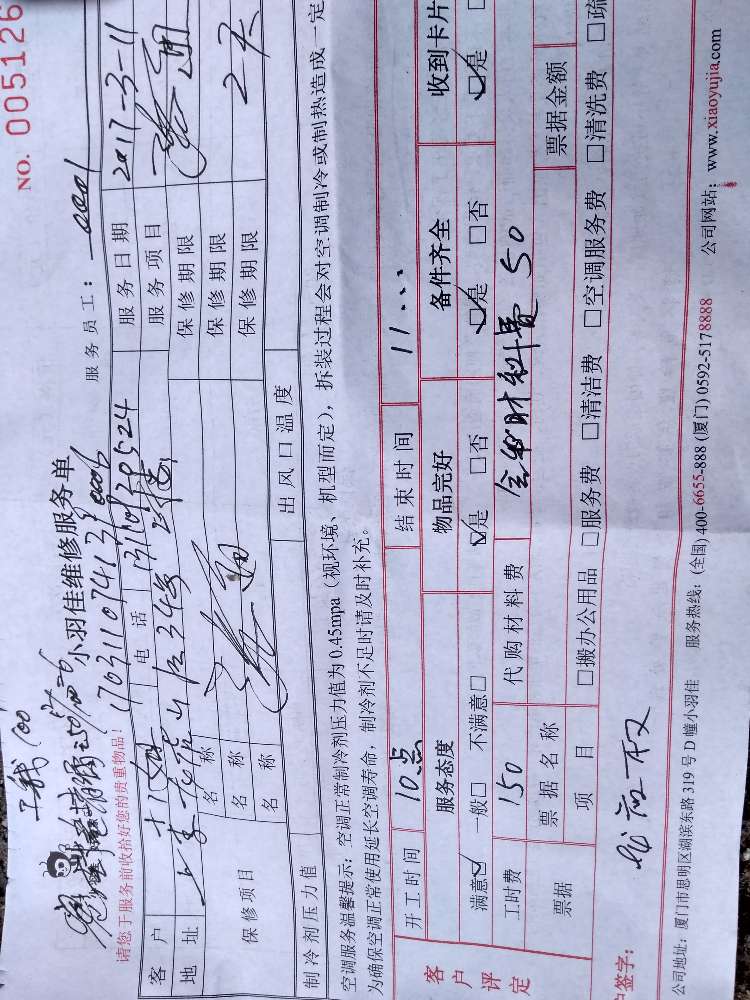 NO. 005126
工钱100
小羽佳维修服务单
服务员工：0001
请您于服务前收拾好您的贵重物品！
客户
电话
服务日期 2017-3-11
地址
服务项目
保修项目
名称
保修期限
名称
保修期限
名称
保修期限 2天
制冷剂压力值
出风口温度
空调服务温馨提示：空调正常制冷剂压力值为0.45mpa（视环境、机型而定），拆装过程会对空调制冷或制热造成一定
为确保空调正常使用延长空调寿命，制冷剂不足时请及时补充。
客户评定
开工时间 10点 结束时间 11
服务态度 物品完好 备件齐全 收到卡片
满意☑ 一般□ 不满意□ ☑是 □否 ☑是 □否 ☑是
工时费 150 代购材料费 50
票据
票据名称
票据金额
项目
□搬办公用品 □服务费 □清洁费 □空调服务费 □清洗费 □疏
签字：
公司地址：厦门市思明区湖滨东路319号D幢小羽佳 服务热线：(全国) 400-6655-888 (厦门) 0592-5178888 公司网站：www.xiaoyujia.com